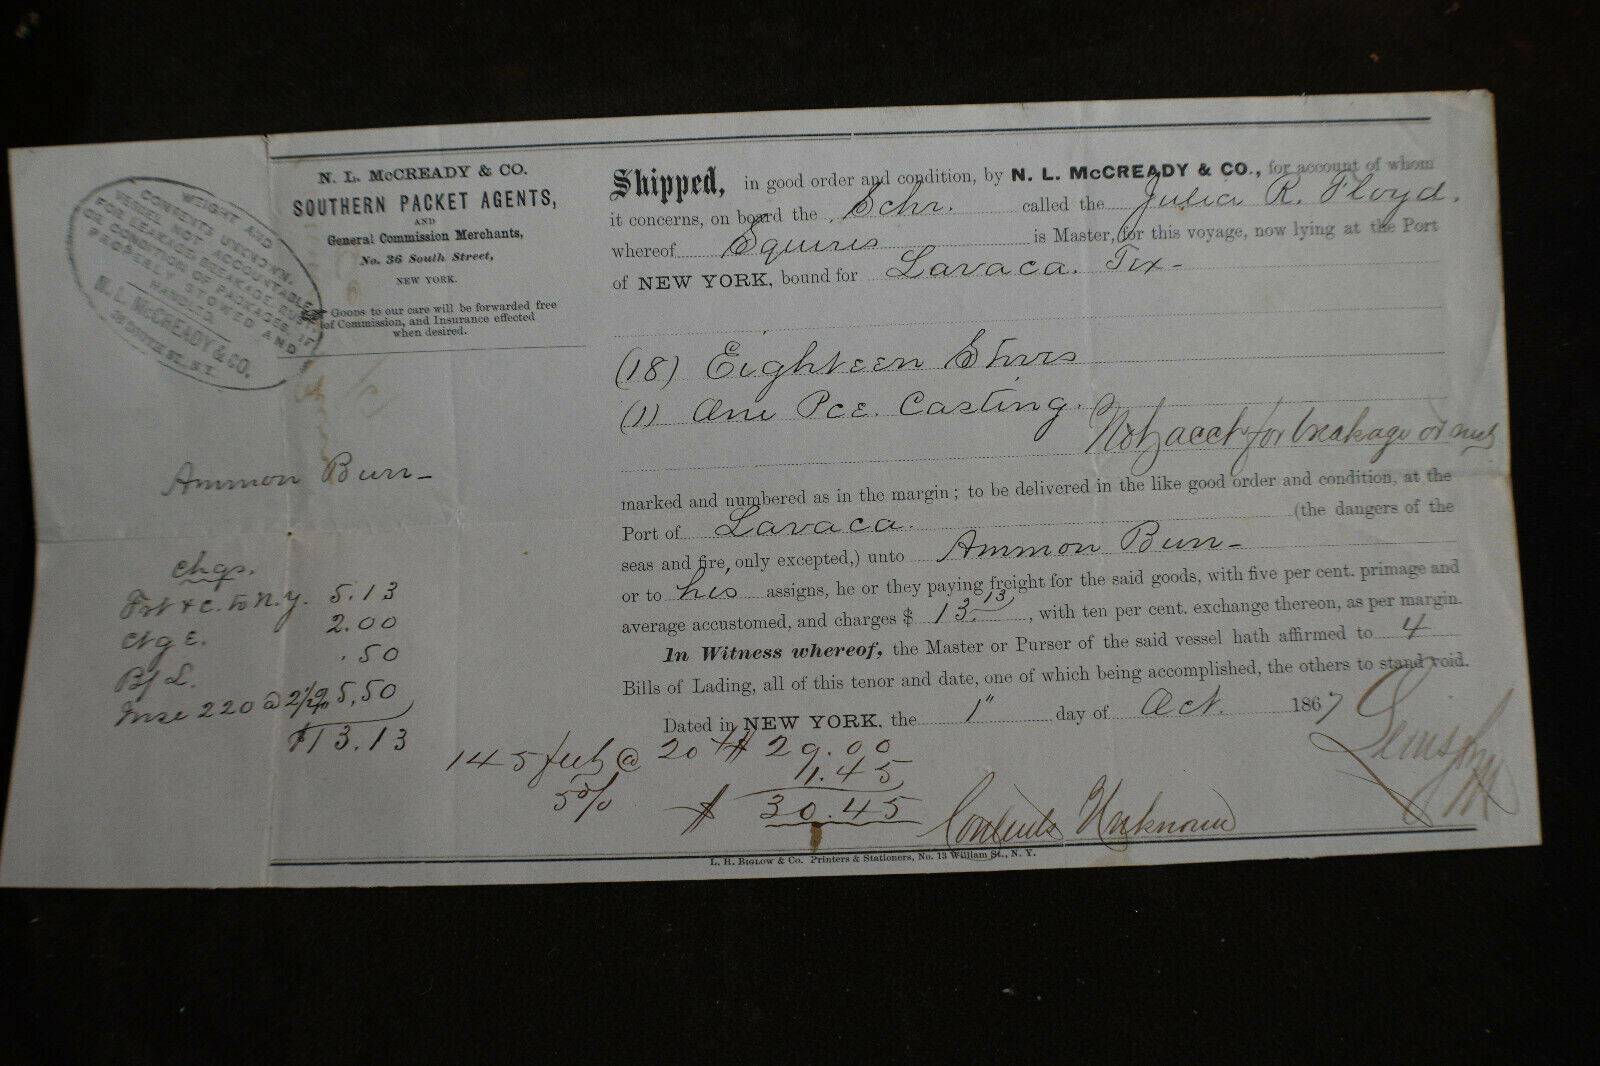 WEIGHT AND
CONTENTS UNKNOWN.
VESSEL NOT ACCOUNTABLE
FOR LEAKAGE, BREAKAGE, RUST
OR CONDITION OF PACKAGES, IF
PROPERLY STOWED AND
HANDLED.
N. L. McCREADY & CO.
36 SOUTH ST., N.Y.
N. L. McCREADY & CO.
SOUTHERN PACKET AGENTS,
AND
General Commission Merchants,
No. 36 South Street,
NEW YORK.
Goods to our care will be forwarded free
of Commission, and Insurance effected
when desired.
Ammon Burr
Chgs.
Frt & c. to N.Y. 5.13
Ctg E. 2.00
B/L. .50
Inse 220 @ 2½% 5,50
$13.13
Shipped, in good order and condition, by N. L. McCREADY & CO., for account of whom
it concerns, on board the Schr. called the Julia R. Floyd.
whereof Squires is Master, for this voyage, now lying at the Port
of NEW YORK, bound for Lavaca. Tex
(18) Eighteen
(1) One Pce. Casting.
Not acct for breakage or
marked and numbered as in the margin; to be delivered in the like good order and condition, at the
Port of Lavaca. (the dangers of the
seas and fire, only excepted,) unto Ammon Burr
or to his assigns, he or they paying freight for the said goods, with five per cent. primage and
average accustomed, and charges $ 13.13, with ten per cent. exchange thereon, as per margin.
In Witness whereof, the Master or Purser of the said vessel hath affirmed to 4
Bills of Lading, all of this tenor and date, one of which being accomplished, the others to stand void.
Dated in NEW YORK, the 1" day of Oct. 1867
145 feet @ 20 $ 29.00
5% 1.45
$ 30.45
Contents Unknown
L. H. Biglow & Co. Printers & Stationers, No. 13 William St., N. Y.